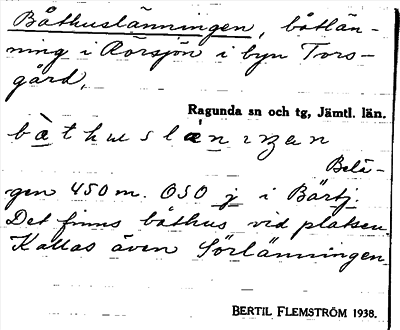 Båthuslänningen, båtlän-
ning i Rörsjön i byn Tors-
gård.
Ragunda sn och tg, Jämtl. län.
Belä-
gen 450 m. OSO j i Bärtj.
Det finns båthus vid platsen.
Kallas även Sörlänningen
BERTIL FLEMSTRÖM 1938.